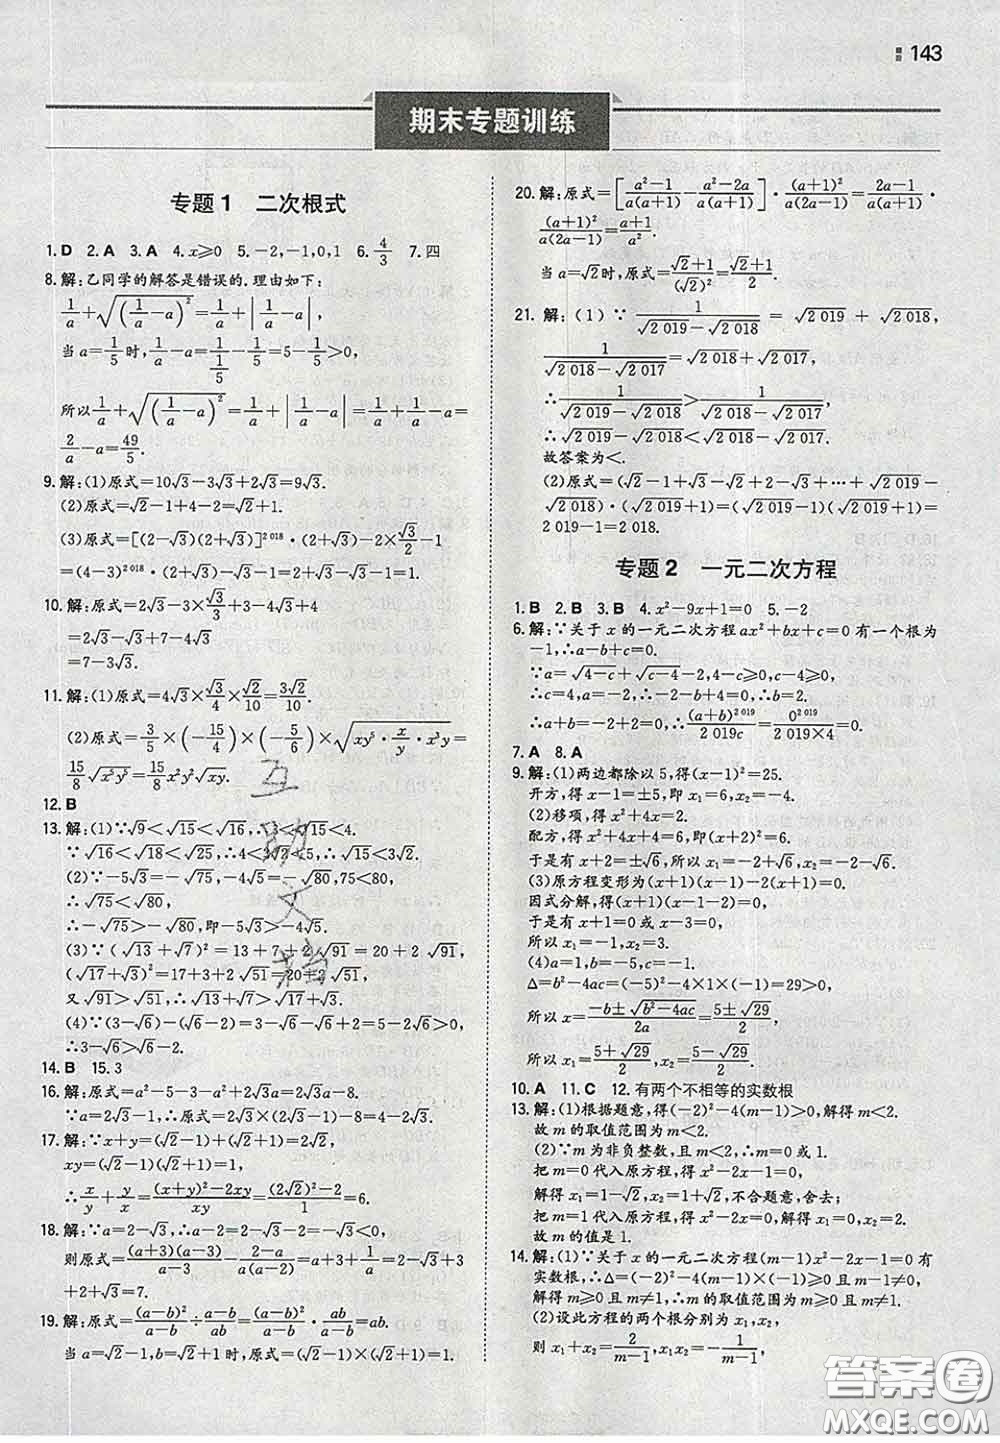 143
期末专题训练
专题1 二次根式
1.D 2.A 3.A 4.x⩾0 5.-2,-1,0,1 6.4/3 7.四
8.解:乙同学的解答是错误的.理由如下:
1/a+√((1/a-a)²)=1/a+|1/a-a|,
当a=1/5时,1/a-a=1/(1/5)-1/5=5-1/5>0,
所以1/a+√((1/a-a)²)=1/a+|1/a-a|=1/a+1/a-a=
2/a-a=49/5.
9.解:(1)原式=10√3-3√3+2√3=9√3.
(2)原式=√2-1+4-2=√2+1.
(3)原式=[(2-√3)(2+√3)]²⁰¹⁸·(2+√3)-2×√3/2-1
=(4-3)²⁰¹⁸·(2+√3)-√3-1=2+√3-√3-1=1.
10.解:原式=2√3-3×√3/3+√3+3-4√3+4
=2√3-√3+7-4√3
=7-3√3.
11.解:(1)原式=4√3×√3/4×√2/10=3√2/10.
(2)原式=3/5×(-15/4)×(-5/6)×√(xy⁵·x/y·x³y)=
15/8√(x⁵y⁵)=15/8x²y²√xy.
12.B
13.解:(1)∵√9<√15<√16,∴3<√15<4.
∵√16<√18<√25,∴4<3√2<5,∴√15<3√2.
(2)∵-5√3=-√75,-4√5=-√80,75<80,
∴√75<√80,
∴-√75>-√80,即-5√3>-4√5.
(3)∵(√13+√7)²=13+7+2√91=20+2√91,
(√17+√3)²=17+3+2√51=20+2√51,
又√91>√51,∴√13+√7>√17+√3.
(4)∵(3-√6)-(√6-2)=3-√6-√6+2=5-2√6>0,
∴3-√6>√6-2.
14.B 15.3
16.解:原式=a²-5-3-a²+2√3a=2√3a-8.
∵a=2√3-1,∴原式=2√3×(2√3-1)-8=4-2√3.
17.解:∵x+y=(√2-1)+(√2+1)=2√2,
xy=(√2-1)(√2+1)=1,
∴x/y+y/x=((x+y)²-2xy)/xy=((2√2)²-2×1)/1=6.
18.解:∵a=2-√3,∴a-2=2-√3-2=-√3<0,
则原式=(a+3)(a-3)/(a-3)-(2-a)/(a(a-2))=a+3+1/a=2-√3+3
+2+√3=7.
19.解:原式=(a-b)²/(a-b)÷(a-b)/ab=(a-b)²/(a-b)·ab/(a-b)=ab.
当a=√2+1,b=√2-1时,原式=(√2+1)(√2-1)=1.
20.解:原式=[(a²-1)/(a(a+1))-(a²-2a)/(a(a+1))]·(a+1)²/(a(2a-1))=(2a-1)/(a(a+1))·
(a+1)²/(a(2a-1))=(a+1)/a².
当a=√2时,原式=(√2+1)/(√2)²=(√2+1)/2.
21.解:(1)∵1/(√2 019-√2 018)=√2 019+√2 018,
1/(√2 018-√2 017)=√2 018+√2 017,
∴1/(√2 019-√2 018)>1/(√2 018-√2 017),
∴√2 019-√2 018<√2 018-√2 017.
故答案为<.
(2)原式=(√2-1+√3-√2+√4-√3+…+√2 019-
√2 018)·(√2 019+1)=(√2 019-1)(√2 019+1)=
2 019-1=2 018.
专题2 一元二次方程
1.B 2.B 3.B 4.x²-9x+1=0 5.-2
6.解:∵关于x的一元二次方程ax²+bx+c=0有一个根为
-1,∴a-b+c=0.
∵a=√(4-c)+√(c-4)-2,4-c⩾0,c-4⩾0,
∴c=4,a=-2,∴-2-b+4=0,∴b=2.
∴a+b=-2+2=0,∴(a+b)²⁰¹⁹/2 019c=0²⁰¹⁹/(2 019×4)=0.
7.A 8.A
9.解:(1)两边都除以5,得(x-1)²=25.
开方,得x-1=±5,即x₁=6,x₂=-4.
(2)移项,得x²+4x=2.
配方,得x²+4x+4=6,即(x+2)²=6.
于是有x+2=±√6,所以x₁=-2+√6,x₂=-2-√6.
(3)原方程变形为(x+1)(x-1)-2(x+1)=0.
因式分解,得(x+1)(x-1-2)=0.
于是有x+1=0或x-3=0.
所以x₁=-1,x₂=3.
(4)a=1,b=-5,c=-1.
Δ=b²-4ac=(-5)²-4×1×(-1)=29>0,
所以x=(-b±√(b²-4ac))/2a=(5±√29)/2,
所以x₁=(5+√29)/2,x₂=(5-√29)/2.
10.A 11.C 12.有两个不相等的实数根
13.解:(1)根据题意,得(-2)²-4(m-1)>0,解得m<2.
故m的取值范围为m<2.
(2)∵m为非负整数,且m<2,∴m=0或1.
把m=0代入原方程,得x²-2x-1=0,
解得x₁=1-√2,x₂=1+√2,不合题意,舍去;
把m=1代入原方程,得x²-2x=0,解得x₁=0,x₂=2.
故m的值是1.
14.解:(1)∵关于x的一元二次方程(m-1)x²-2x-1=0有
实数根,∴Δ=(-2)²-4(m-1)×(-1)⩾0且m-1≠0,
解得m⩾0且m≠1,∴m的取值范围是m⩾0且m≠1.
(2)设此方程的两个根分别为x₁,x₂,
则x₁+x₂=2/(m-1),x₁x₂=-1/(m-1),
互助文档
答案圈
MXQE.COM